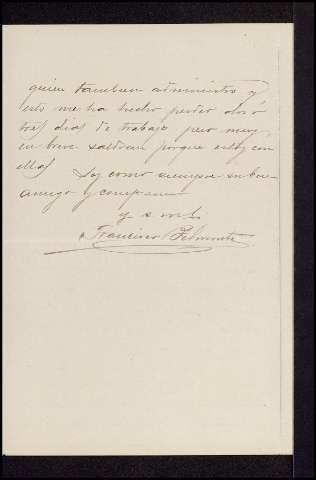 quien tambien administro y
esto me ha hecho perder dos ó
tres dias de trabajo pero muy
en breve saldran porque estoy con
ellas Soy como siempre su buen
amigo y compañero
y s. s.
Francisco Belmonte